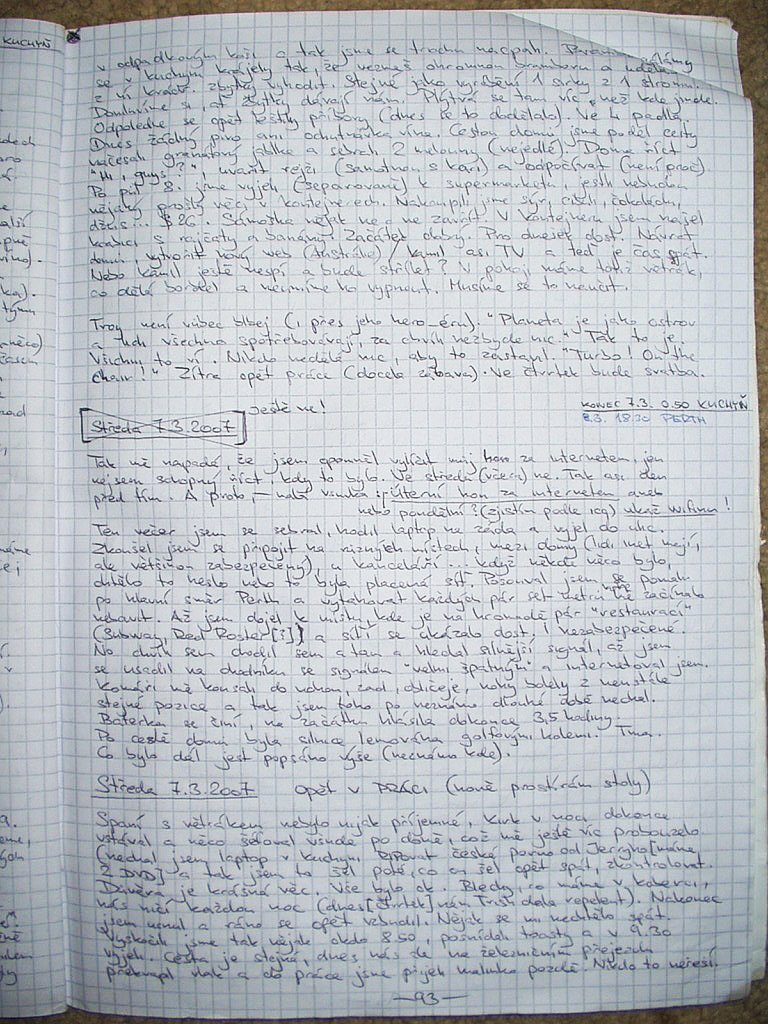 KUCHYŇ
v odpadkovým koši a tak jsme se trochu nacpali.
se v kuchyni krájely tak, že vezmeš ohromnou bramboru a uděláš
z ní kvádr. Zbytky vyhodit. Stejně jako vyrábění 1 sirky z 1 stromu.
Domluvíme si, ať zbytky dávají nám. Plýtvá se tam víc, než kde jinde.
Odpoledne se opět leštily příbory (dnes se to dodělalo). Ve 4 padla.
Dnes žádný pivo ani ochutnávka vína. Cestou domů jsme podél cesty
načesali granátový jablka a sebrali 2 melouny (nejedlé). Doma říct
"Hi, guys?", uvařit rejži (samotnou s kari) a odpočívat (není proč).
Po půl 8. jsme vyjeli (separovaně) k supermarketu, jestli nebudou
nějaký prošlý věci v kontejnerech. Nakoupili jsme sýr, cibuli, čokoládu,
džus... $26. Sámoška nějak ne a ne zavřít. V kontejneru jsem našel
krabici s rajčaty a banány. Začátek doby. Pro dnešek dost. Návrat
domů, vytvořit nový web (Austrálie) / Kamil asi TV a teď je čas spát.
Nebo Kamil ještě nespí a bude střílet? V pokoji máme totiž větrák,
co dělá bordel a neumíme ho vypnout. Musíme se to naučit.
Troy není vůbec blbej (i přes jeho hero-éru). "Planeta je jako ostrov
a lidi všechno spotřebovávají, za chvíli nezbyde nic." Tak to je.
Všichni to ví. Nikdo nedělá nic, aby to zastavil. "Turbo! On the
chair!" Zítra opět práce (docela zábava). Ve čtvrtek bude svatba.
KONEC 7.3. 0.50 KUCHYŇ
8.3. 18.30 PERTH
Středa 7.3.2007 ještě ne!
Tak mě napadá, že jsem opomněl vylíčit můj hon za internetem, jen
nejsem schopný říct, kdy to bylo. Ve středu (včera) ne. Tak asi den
před tím. A proto, – naše vsuvka: Úterní hon za internetem aneb
nebo pondělní? (zjistím podle icq) ukaž wifinu!
Ten večer jsem se sebral, hodil laptop na záda a vyjel do ulic.
Zkoušel jsem se připojit na různých místech, mezi domy (lidi inet mají,
ale většinou zabezpečený), u kanceláří... když někde něco bylo,
chtělo to heslo nebo to byla placená síť. Posouval jsem se pomalu
po hlavní směr Perth a vytahovat každých pár set metrů mě začínalo
nebavit. Až jsem dojel k místu, kde je na hromadě pár "restaurací"
(Subway, Red Roster[?]) a sítí se ukázalo dost, i nezabezpečené.
No chvíli sem chodil sem a tam a hledal silnější signál, až jsem
se usadil na chodníku se signálem "velmi špatným" a internetoval jsem.
Komáři mě kousali do nohou, zad, obličeje, nohy bolely z neustále
stejné pozice a tak jsem toho po neznámo dlouhé době nechal.
Baterka se činí, na začátku hlásila dokonce 3,5 hodiny.
Po cestě domů byla silnice lemována golfovými holemi. Tma.
Co bylo dál jest popsáno výše (neznámo kde).
Středa 7.3.2007 Opět v PRÁCI (nově prostírám stoly)
Spaní s větrákem nebylo nijak příjemné, kluk v noci dokonce
vstával a něco šátoval všude po domě, což mě ještě víc probouzelo
(nechal jsem laptop v kuchyni, české porno od Jerryho [máme
2 DVD] a tak jsem to šel poté, co on šel opět spát, zkontrolovat.
Důvěra je krásná věc. Vše bylo ok. Blechy, co máme v koberci,
nás ničí každou noc (dnes [čtrtek] nám Trish dala repelent). Nakonec
jsem usnul a ráno se opět vzbudil. Nějak se mi nechtělo spát.
Vyskočili jsme tak nějak okolo 8.50, posnídali toasty a v 9.30
vyjeli. Cesta je stejná, dnes nás ale na železničním přejezdu
překvapil vlak a do práce jsme přijeli malinko pozdě. Nikdo to neřeší.
—93—